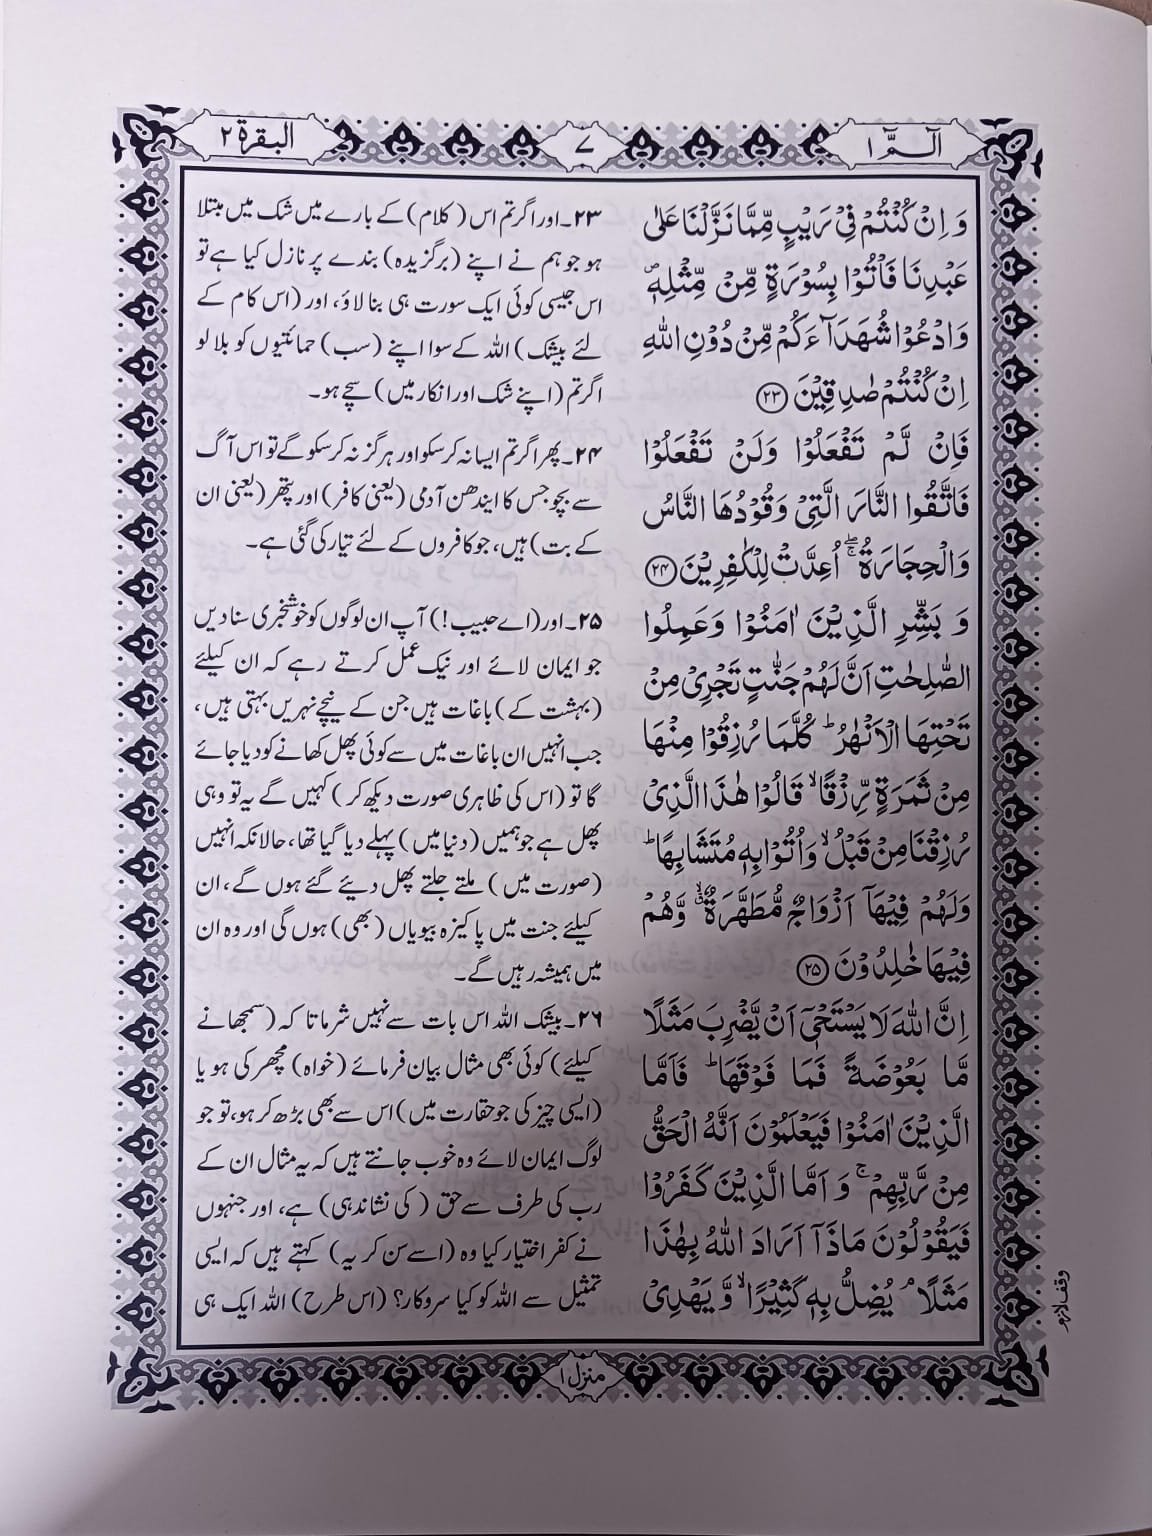 الٓـمّٓ ۱
۷
البقرة ۲
وَ اِنْ كُنْتُمْ فِیْ رَیْبٍ مِّمَّا نَزَّلْنَا عَلٰی
عَبْدِنَا فَاْتُوْا بِسُوْرَةٍ مِّنْ مِّثْلِهٖ۪
وَادْعُوْا شُهَدَآءَكُمْ مِّنْ دُوْنِ اللّٰهِ
اِنْ كُنْتُمْ صٰدِقِیْنَ ﴿۲۳﴾
فَاِنْ لَّمْ تَفْعَلُوْا وَلَنْ تَفْعَلُوْا
فَاتَّقُوا النَّارَ الَّتِیْ وَقُوْدُهَا النَّاسُ
وَالْحِجَارَةُ ۖۚ اُعِدَّتْ لِلْكٰفِرِیْنَ ﴿۲۴﴾
وَ بَشِّرِ الَّذِیْنَ اٰمَنُوْا وَعَمِلُوا
الصّٰلِحٰتِ اَنَّ لَهُمْ جَنّٰتٍ تَجْرِیْ مِنْ
تَحْتِهَا الْاَنْهٰرُ ؕ كُلَّمَا رُزِقُوْا مِنْهَا
مِنْ ثَمَرَةٍ رِّزْقًا ۙ قَالُوْا هٰذَا الَّذِیْ
رُزِقْنَا مِنْ قَبْلُ ۙ وَاُتُوْا بِهٖ مُتَشَابِهًا ؕ
وَلَهُمْ فِیْهَاۤ اَزْوَاجٌ مُّطَهَّرَةٌ ۙۗ وَّهُمْ
فِیْهَا خٰلِدُوْنَ ﴿۲۵﴾
اِنَّ اللّٰهَ لَا یَسْتَحْیٖۤ اَنْ یَّضْرِبَ مَثَلًا
مَّا بَعُوْضَةً فَمَا فَوْقَهَا ؕ فَاَمَّا
الَّذِیْنَ اٰمَنُوْا فَیَعْلَمُوْنَ اَنَّهُ الْحَقُّ
مِنْ رَّبِّهِمْ ۚ وَ اَمَّا الَّذِیْنَ كَفَرُوْا
فَیَقُوْلُوْنَ مَاذَاۤ اَرَادَ اللّٰهُ بِهٰذَا
مَثَلًا ۘ یُضِلُّ بِهٖ كَثِیْرًا ۙ وَّ یَهْدِیْ
۲۳۔ اور اگر تم اس (کلام) کے بارے میں شک میں مبتلا
ہو جو ہم نے اپنے (برگزیدہ) بندے پر نازل کیا ہے تو
اس جیسی کوئی ایک سورت ہی بنا لاؤ، اور (اس کام کے
لئے بیشک) اللہ کے سوا اپنے (سب) حمائتیوں کو بلا لو
اگر تم (اپنے شک اور انکار میں) سچے ہو۔
۲۴۔ پھر اگر تم ایسا نہ کر سکو اور ہرگز نہ کر سکو گے تو اس آگ
سے بچو جس کا ایندھن آدمی (یعنی کافر) اور پتھر (یعنی ان
کے بت) ہیں، جو کافروں کے لئے تیار کی گئی ہے۔
۲۵۔ اور (اے حبیب!) آپ ان لوگوں کو خوشخبری سنا دیں
جو ایمان لائے اور نیک عمل کرتے رہے کہ ان کیلئے
(بہشت کے) باغات ہیں جن کے نیچے نہریں بہتی ہیں،
جب انہیں ان باغات میں سے کوئی پھل کھانے کو دیا جائے
گا تو (اس کی ظاہری صورت دیکھ کر) کہیں گے یہ تو وہی
پھل ہے جو ہمیں (دنیا میں) پہلے دیا گیا تھا، حالانکہ انہیں
(صورت میں) ملتے جلتے پھل دیئے گئے ہوں گے، ان
کیلئے جنت میں پاکیزہ بیویاں (بھی) ہوں گی اور وہ ان
میں ہمیشہ رہیں گے۔
۲۶۔ بیشک اللہ اس بات سے نہیں شرماتا کہ (سمجھانے
کیلئے) کوئی بھی مثال بیان فرمائے (خواہ) مچھر کی ہو یا
(ایسی چیز کی جو حقارت میں) اس سے بھی بڑھ کر ہو، تو جو
لوگ ایمان لائے وہ خوب جانتے ہیں کہ یہ مثال ان کے
رب کی طرف سے حق (کی نشاندہی) ہے، اور جنہوں
نے کفر اختیار کیا وہ (اسے سن کر یہ) کہتے ہیں کہ ایسی
تمثیل سے اللہ کو کیا سروکار؟ (اس طرح) اللہ ایک ہی
وقف لازم
منزل ۱